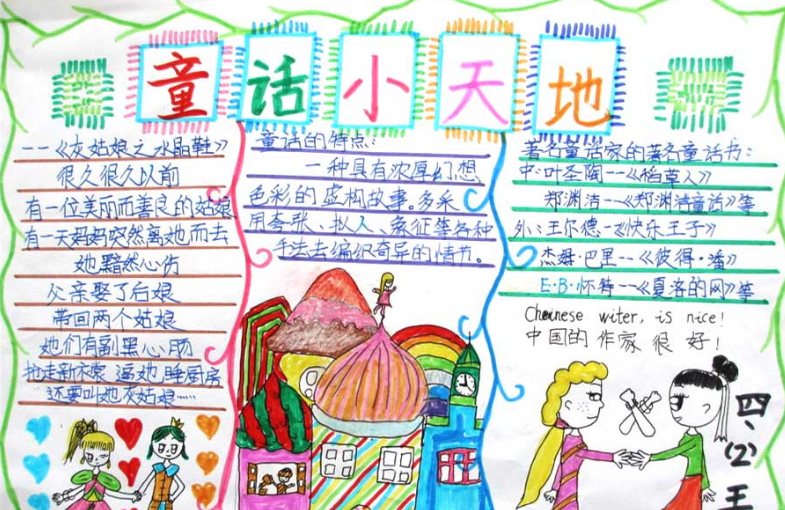 童话小天地
--《灰姑娘之水晶鞋》
很久很久以前
有一位美丽而善良的姑娘
有一天妈妈突然离她而去
她黯然心伤
父亲娶了后娘
带回两个姑娘
她们有副黑心肠
抢走新衣裳 逼她睡厨房
还要叫她灰姑娘……
童话的特点:
一种具有浓厚幻想
色彩的虚构故事。多采
用夸张、拟人、象征等各种
手法去编织奇异的情节。
著名童话家的著名童话书:
中:叶圣陶--《稻草人》
郑渊洁--《郑渊洁童话》等
外:王尔德-《快乐王子》
杰姆·巴里--《彼得·潘》
E·B·怀特--《夏洛的网》等
Chinese witer, is nice!
中国的 作家 很 好!
四、(2) 王